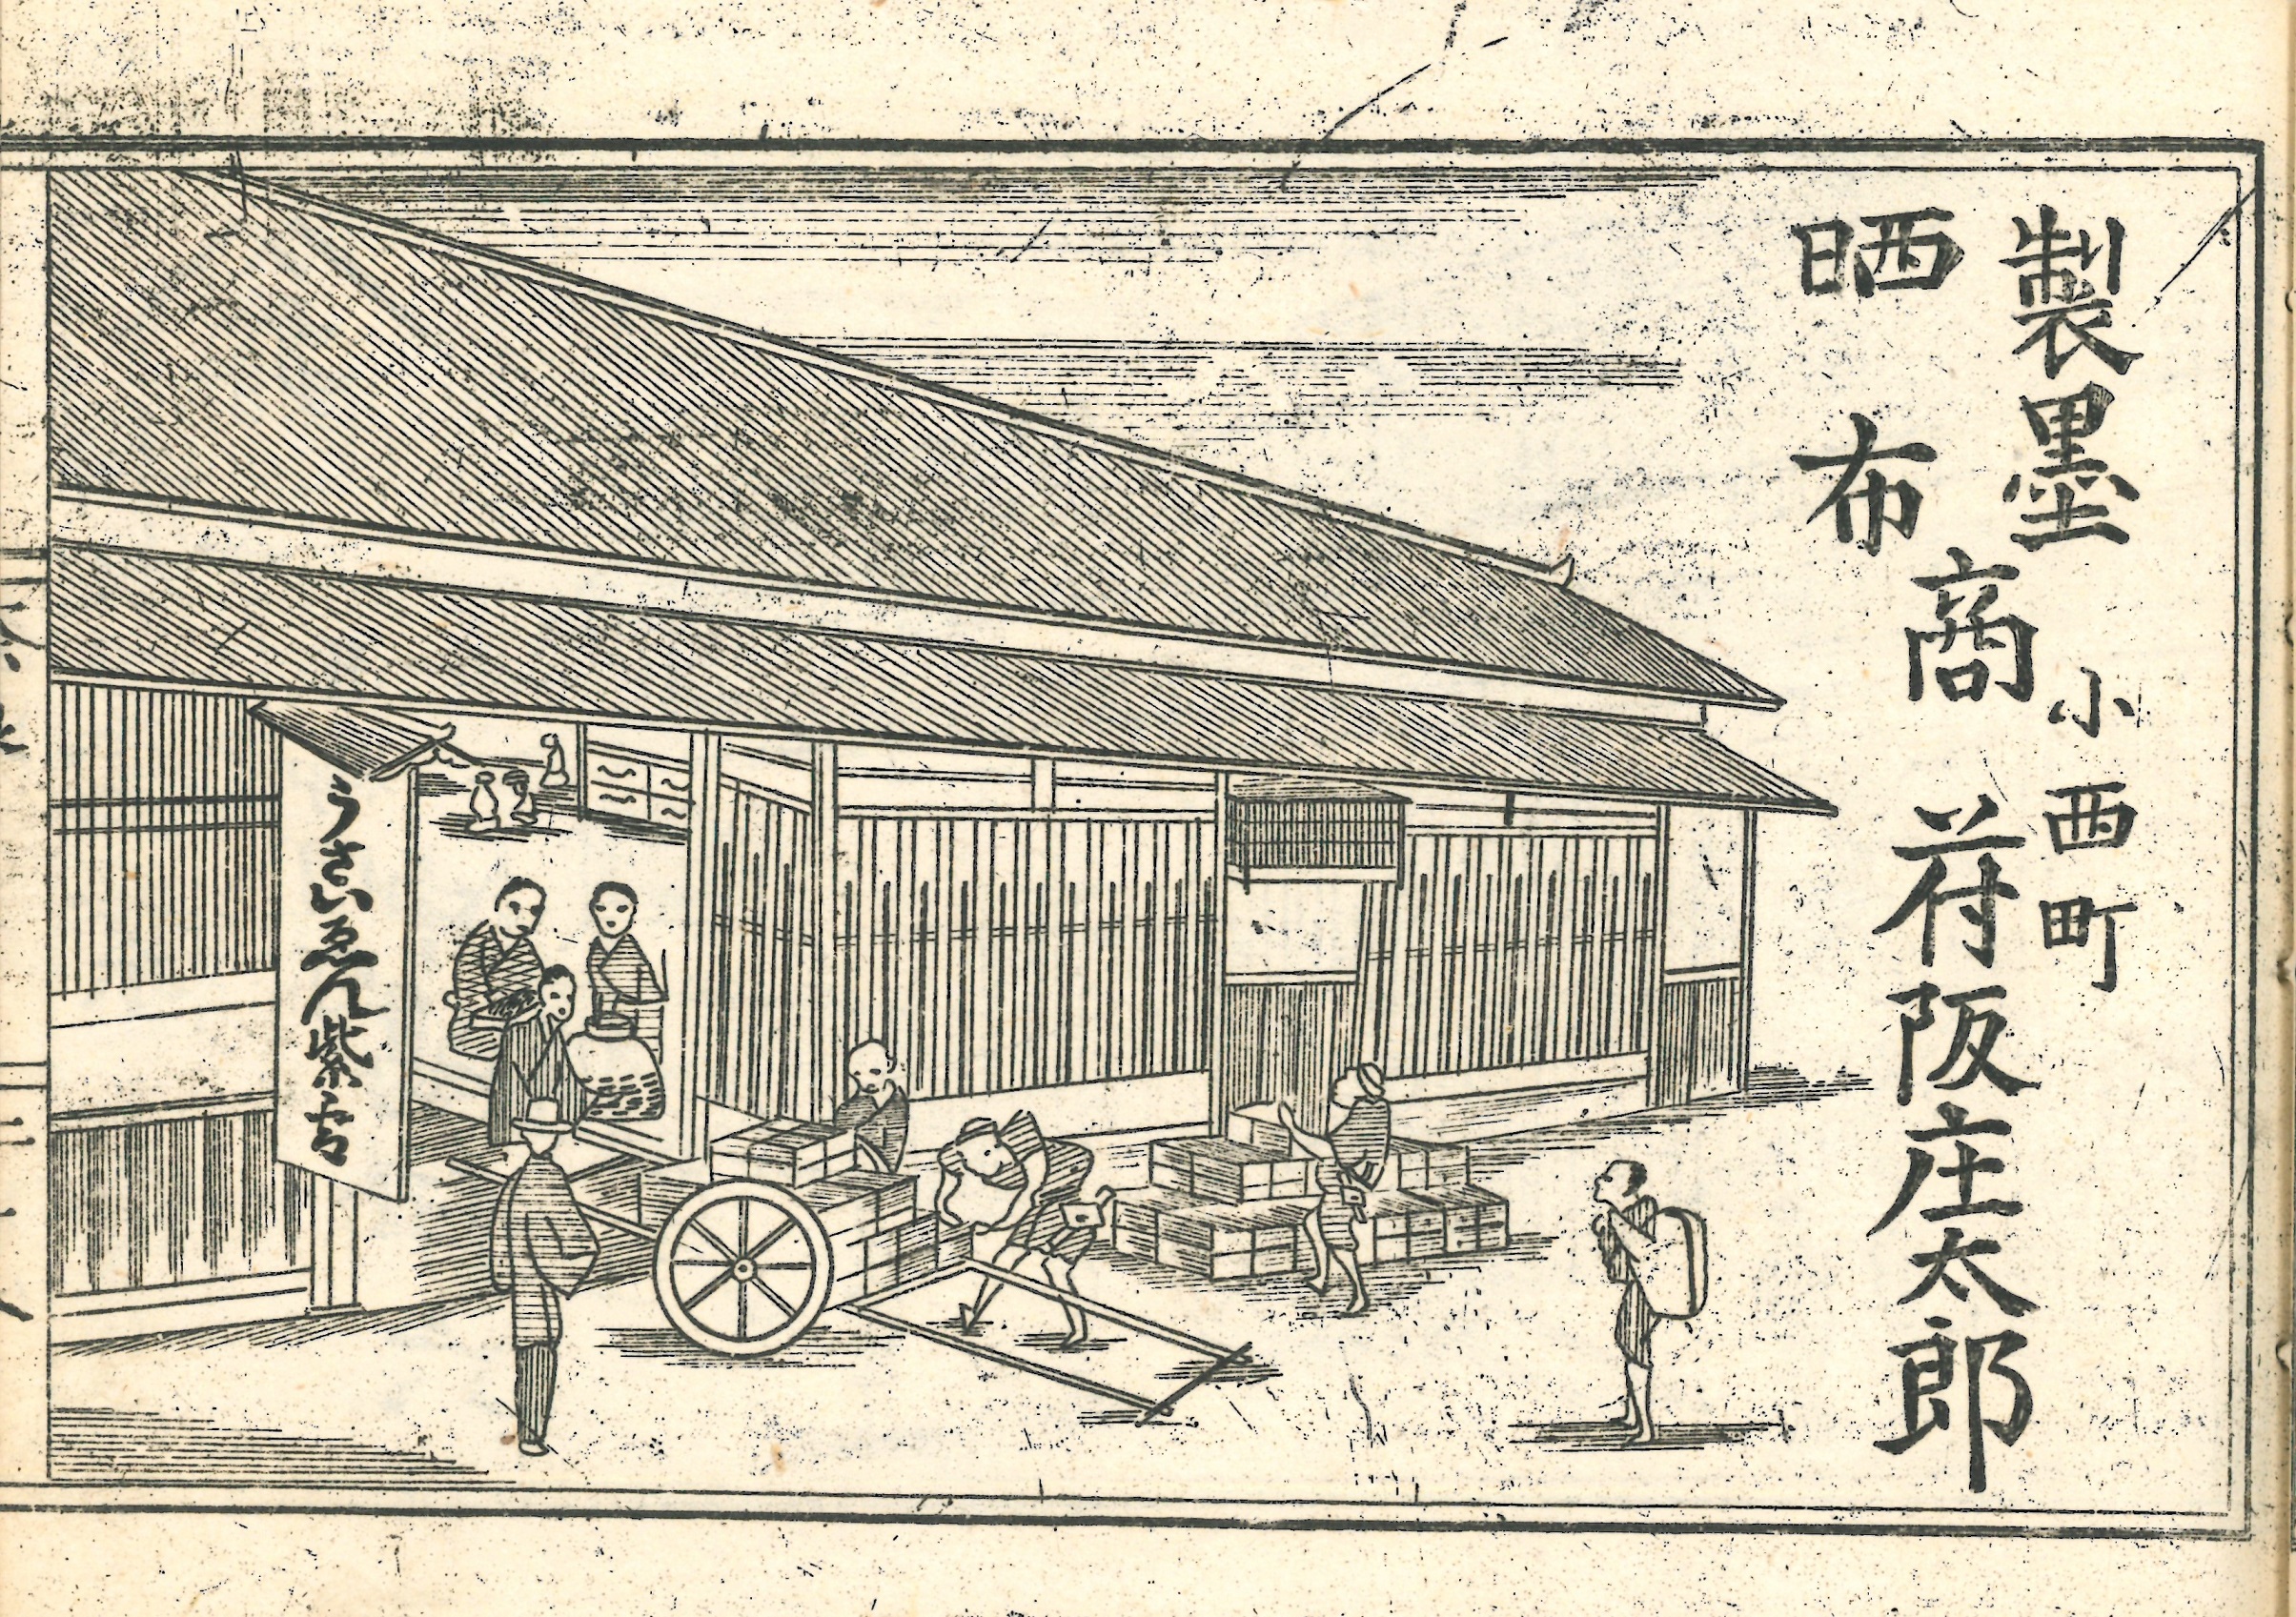 製墨
晒布
商
小西町
苻阪庄太郎
うさいゑん紫雪